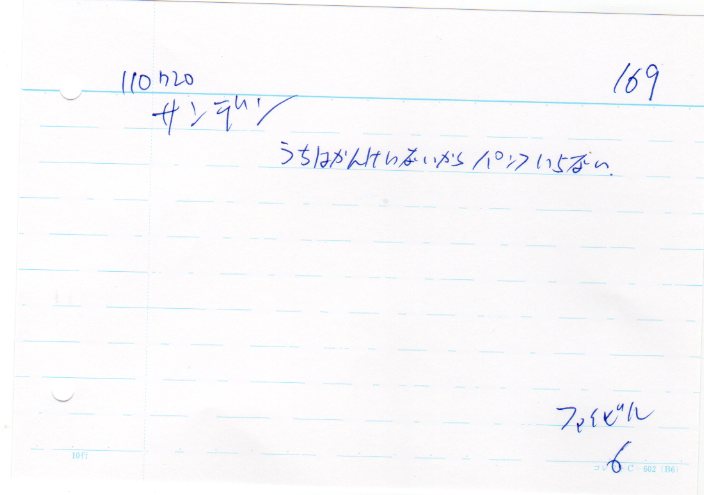 110720
169
サンデン
うちはかんけいないからパンフいらない.
ファイビル
6
10行
C 602 (B6)